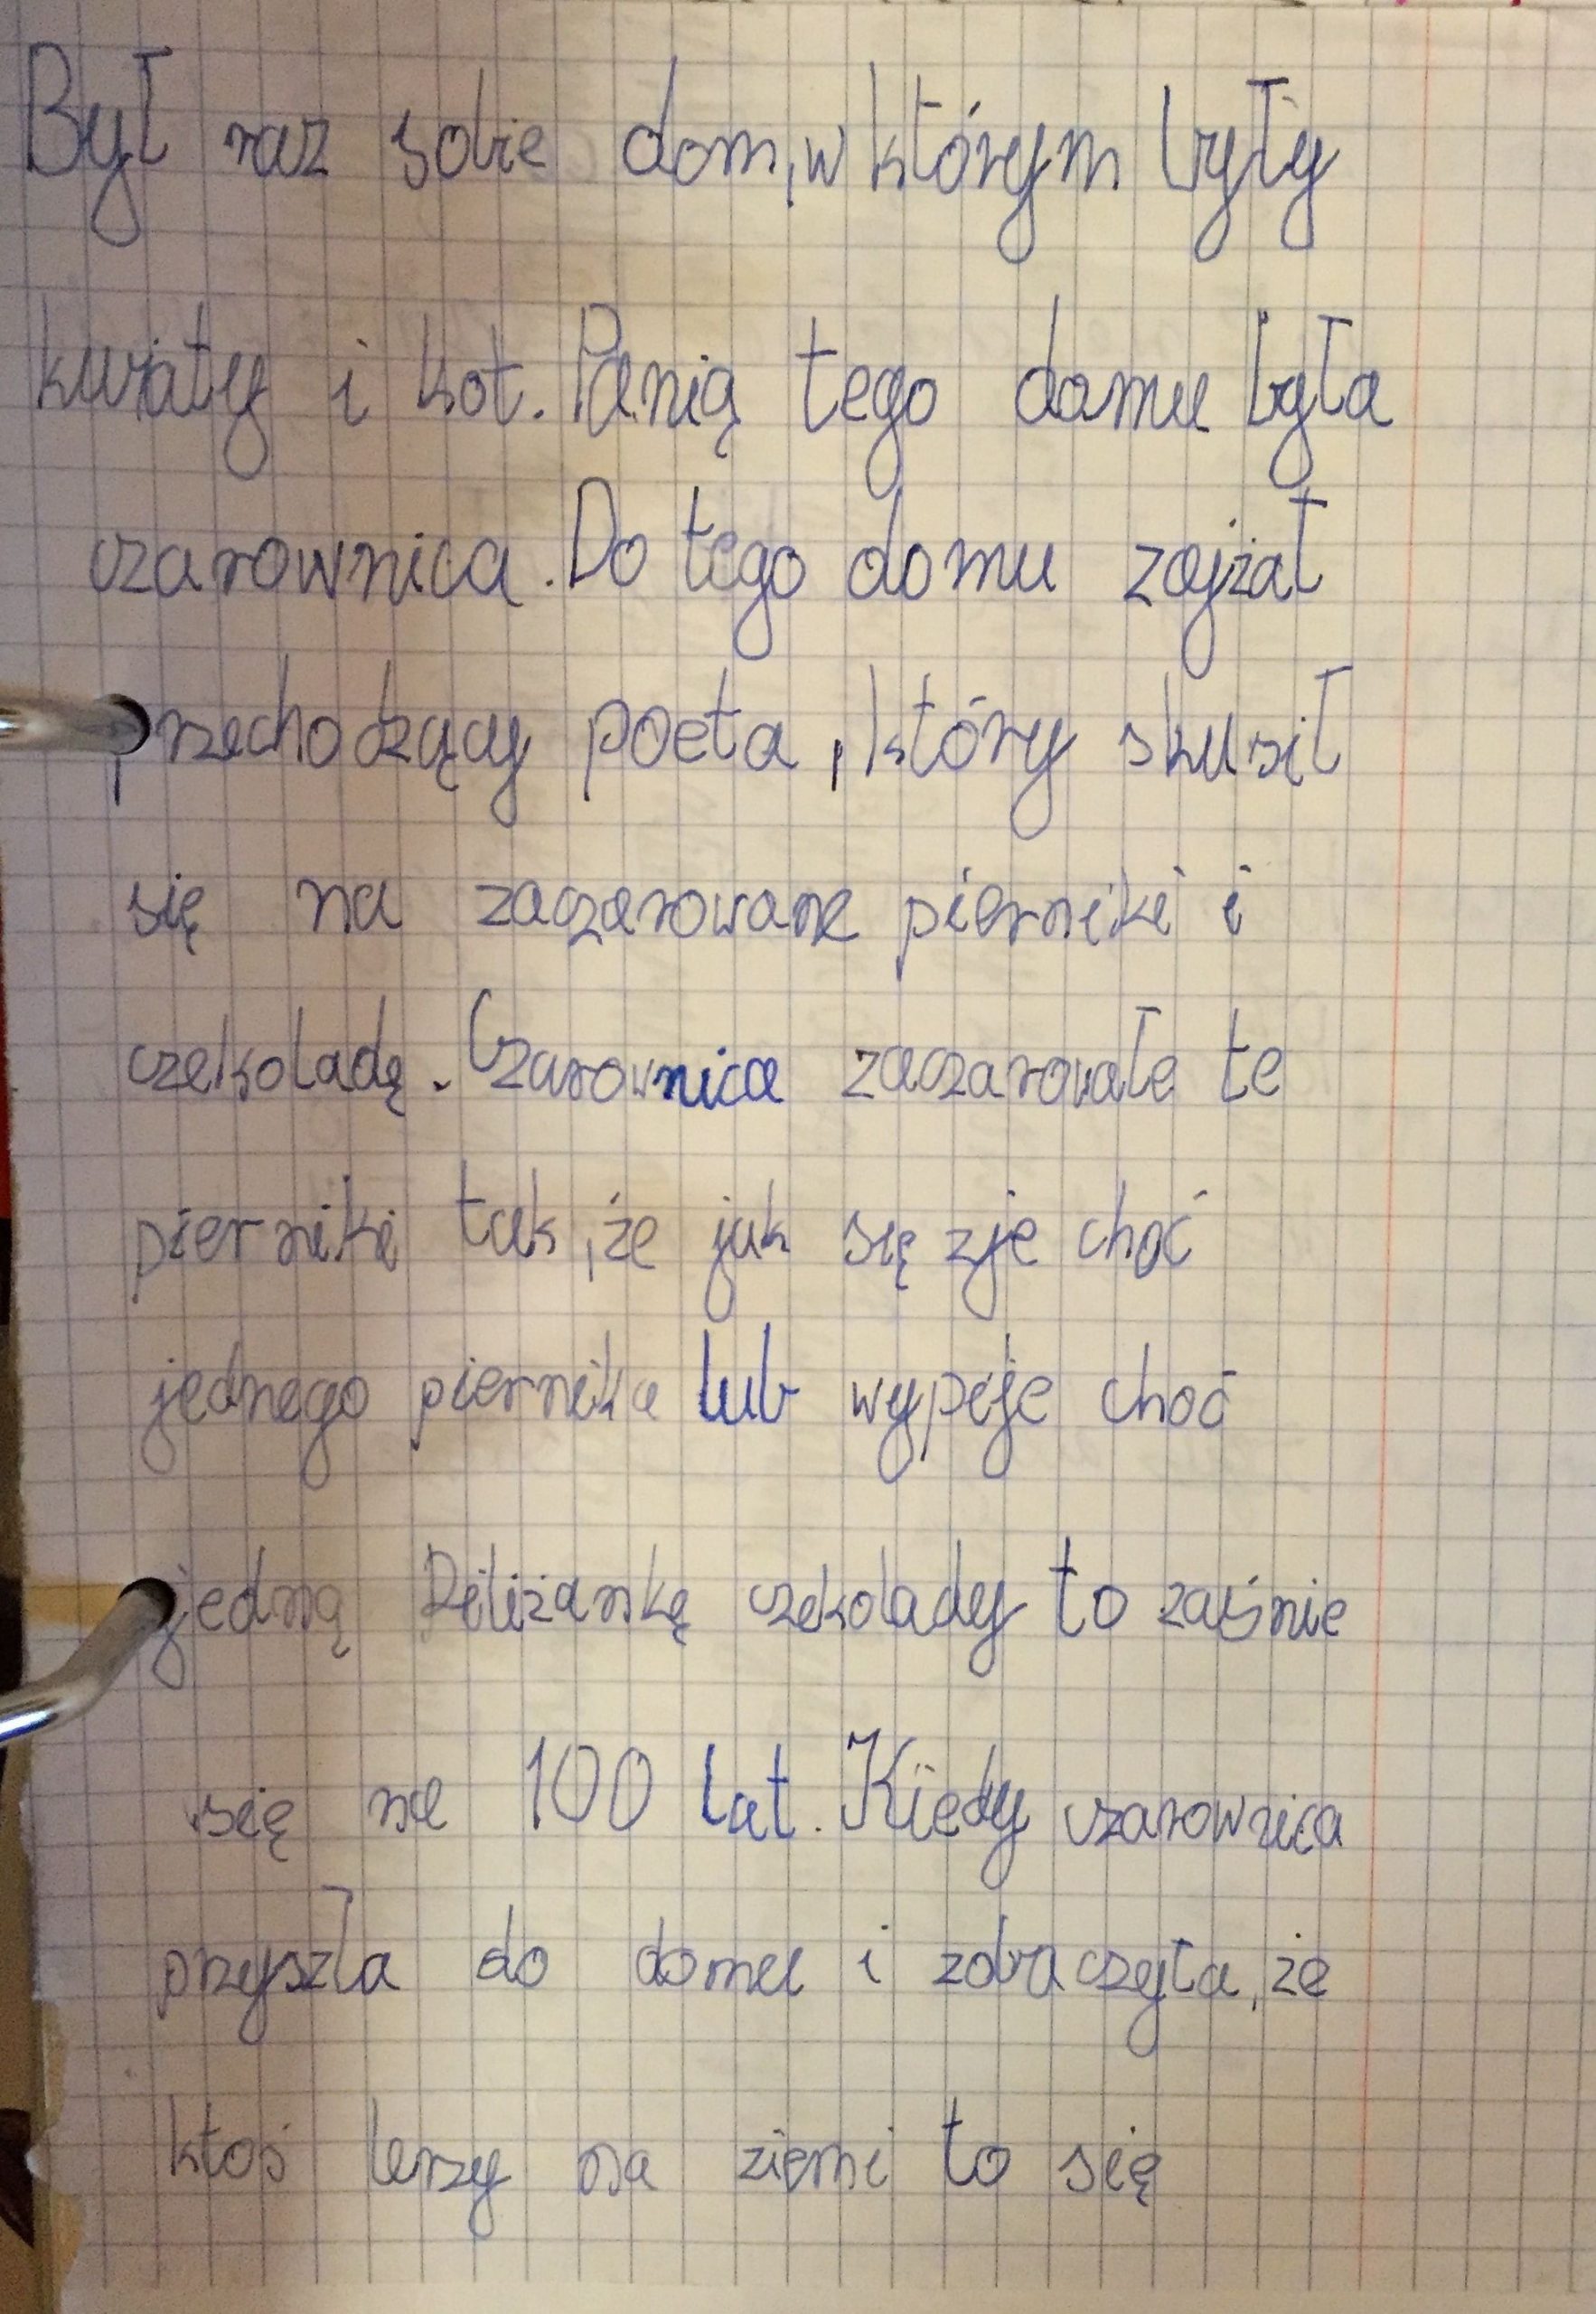 Był raz sobie dom, w którym były
kwiaty i kot. Panią tego domu była
czarownica. Do tego domu zajżał
przechodzący poeta, który skusił
się na zaczarowane pierniki i
czekoladę. Czarownica zaczarowała te
pierniki tak, że jak się zje choć
jednego piernika lub wypije choć
jedną filiżankę czekolady to zaśnie
się na 100 lat. Kiedy czarownica
przyszła do domu i zobaczyła, że
ktoś lerzy na ziemi to się